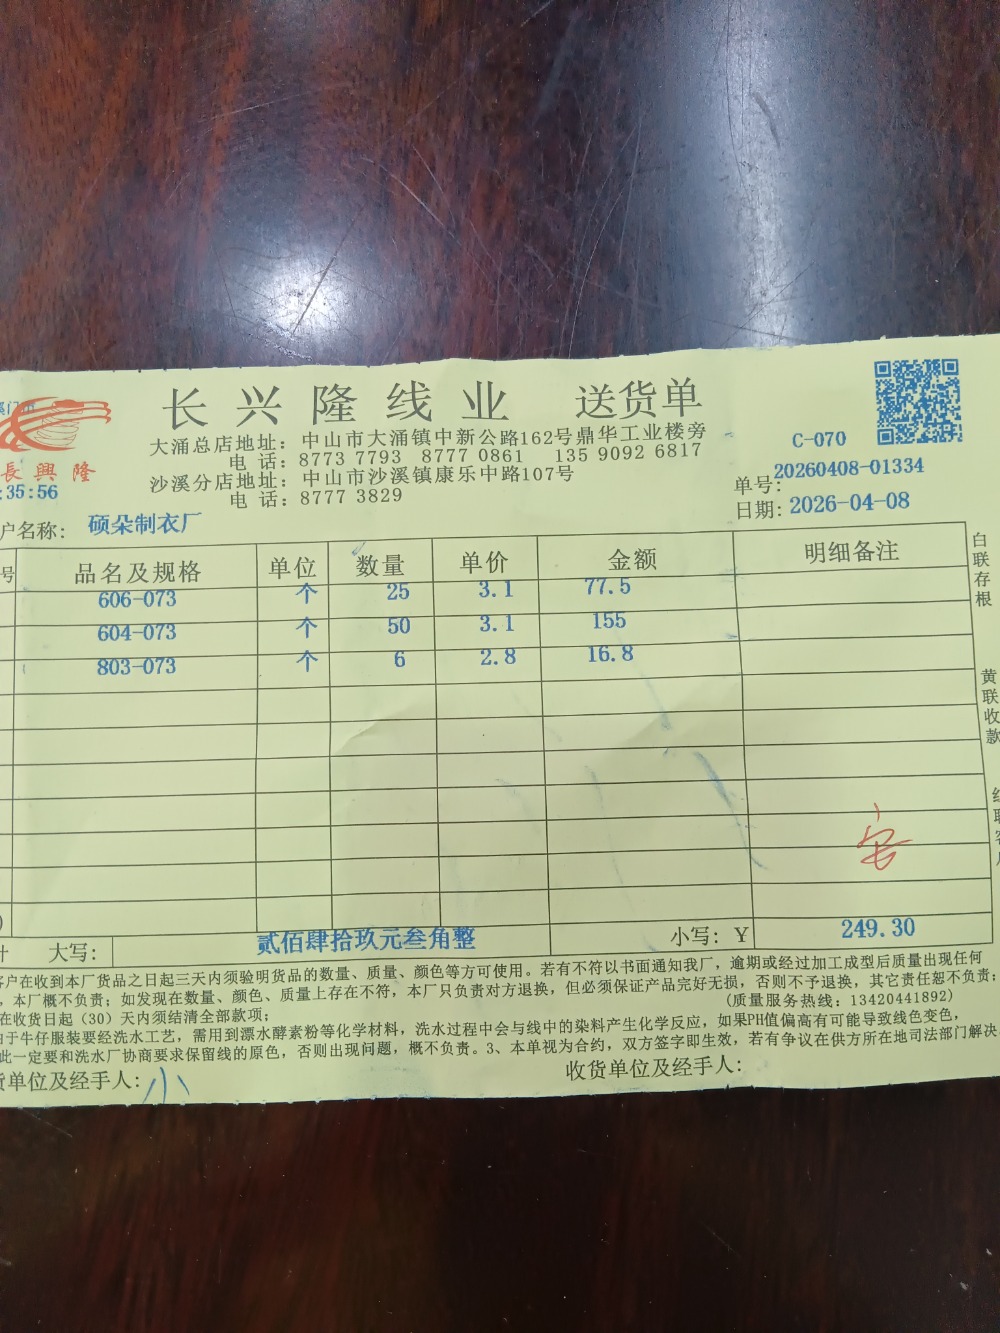 长兴隆线业 送货单
大涌总店地址：中山市大涌镇中新公路162号鼎华工业楼旁
电 话：8773 7793 8777 0861 135 9092 6817
沙溪分店地址：中山市沙溪镇康乐中路107号
电 话：8777 3829
長興隆
:35:56
C-070
单号：20260408-01334
日期：2026-04-08
户名称：硕朵制衣厂
号 品名及规格 单位 数量 单价 金额 明细备注
606-073 个 25 3.1 77.5
604-073 个 50 3.1 155
803-073 个 6 2.8 16.8
计 大写：贰佰肆拾玖元叁角整 小写：￥ 249.30
白联存根
黄联收款
客户在收到本厂货品之日起三天内须验明货品的数量、质量、颜色等方可使用。若有不符以书面通知我厂，逾期或经过加工成型后质量出现任何
，本厂概不负责；如发现在数量、颜色、质量上存在不符，本厂只负责对方退换，但必须保证产品完好无损，否则不予退换，其它责任恕不负责；
在收货日起（30）天内须结清全部款项； （质量服务热线：13420441892）
由于牛仔服装要经洗水工艺，需用到漂水酵素粉等化学材料，洗水过程中会与线中的染料产生化学反应，如果PH值偏高有可能导致线色变色，
此一定要和洗水厂协商要求保留线的原色，否则出现问题，概不负责。3、本单视为合约，双方签字即生效，若有争议在供方所在地司法部门解决
货单位及经手人：小 收货单位及经手人：